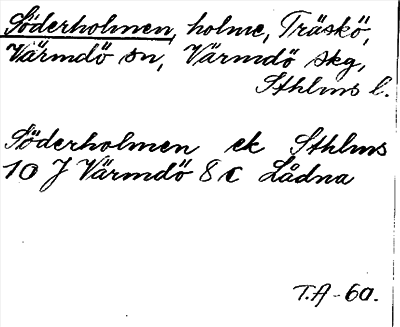 Söderholmen, holme, Träskö,
Värmdö sn, Värmdö skg,
Sthlms l.
Söderholmen ek Sthlms
10 J Värmdö 8 c Lådna
T.A-60.